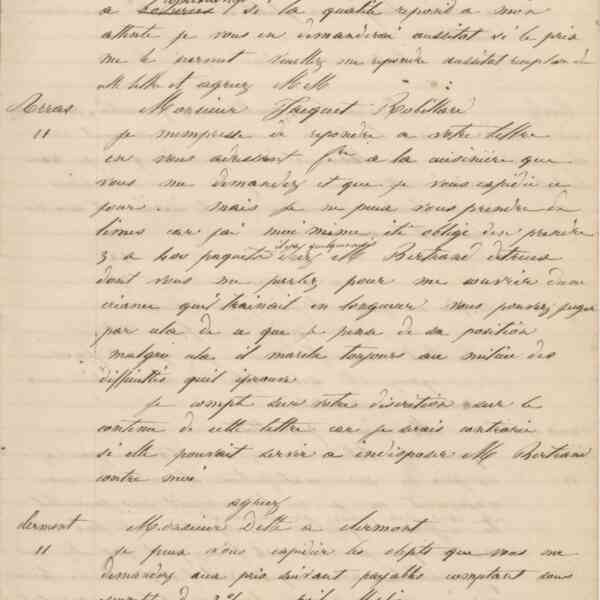 à si la qualité repond a mon
attente je vous en demanderai aussitot si le prix
me le permet veuillez me repondre aussitot reception de
lettre et agreez MM
Arras Monsieur Jacquet Robillard
11 je m'empresse de repondre a votre lettre
en vous adressant fre a la cuisiniere que
vous me demandez et que je vous expedie ce
jour . mais je ne peux vous prendre de
limes car j'ai moi meme été obligé d'en prendre
3 a paquets il y a quelques mois chez M Bertrand
dont vous me parlez pour me couvrir d'une
creance qui trainait en longueur vous pouvez juger
par cela de ce que je pense de sa position
malgré cela il marche toujours au milieu des
difficultés qu'il eprouve
je compte sur votre discretion sur le
contenu de cette lettre car je serais contrarié
si elle pouvait servir a indisposer M Bertrand
contre moi
agreez
clermont Monsieur a clermont
11 je peux vous expedier les objets que vous me
demandez aux prix suivant payables comptant sous